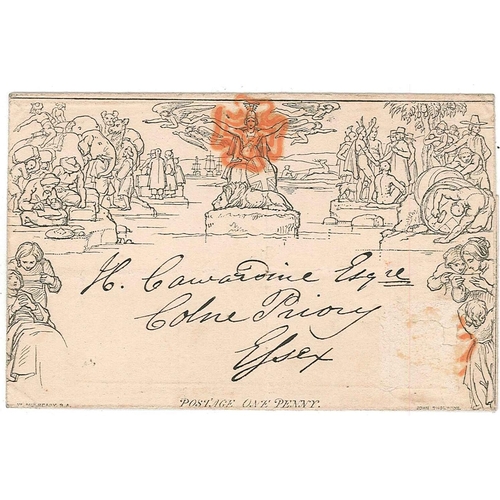 H. Cawardine Esqre
Colne Priory
Essex
POSTAGE ONE PENNY.
W. MULREADY. R.A.
JOHN THOMPSON